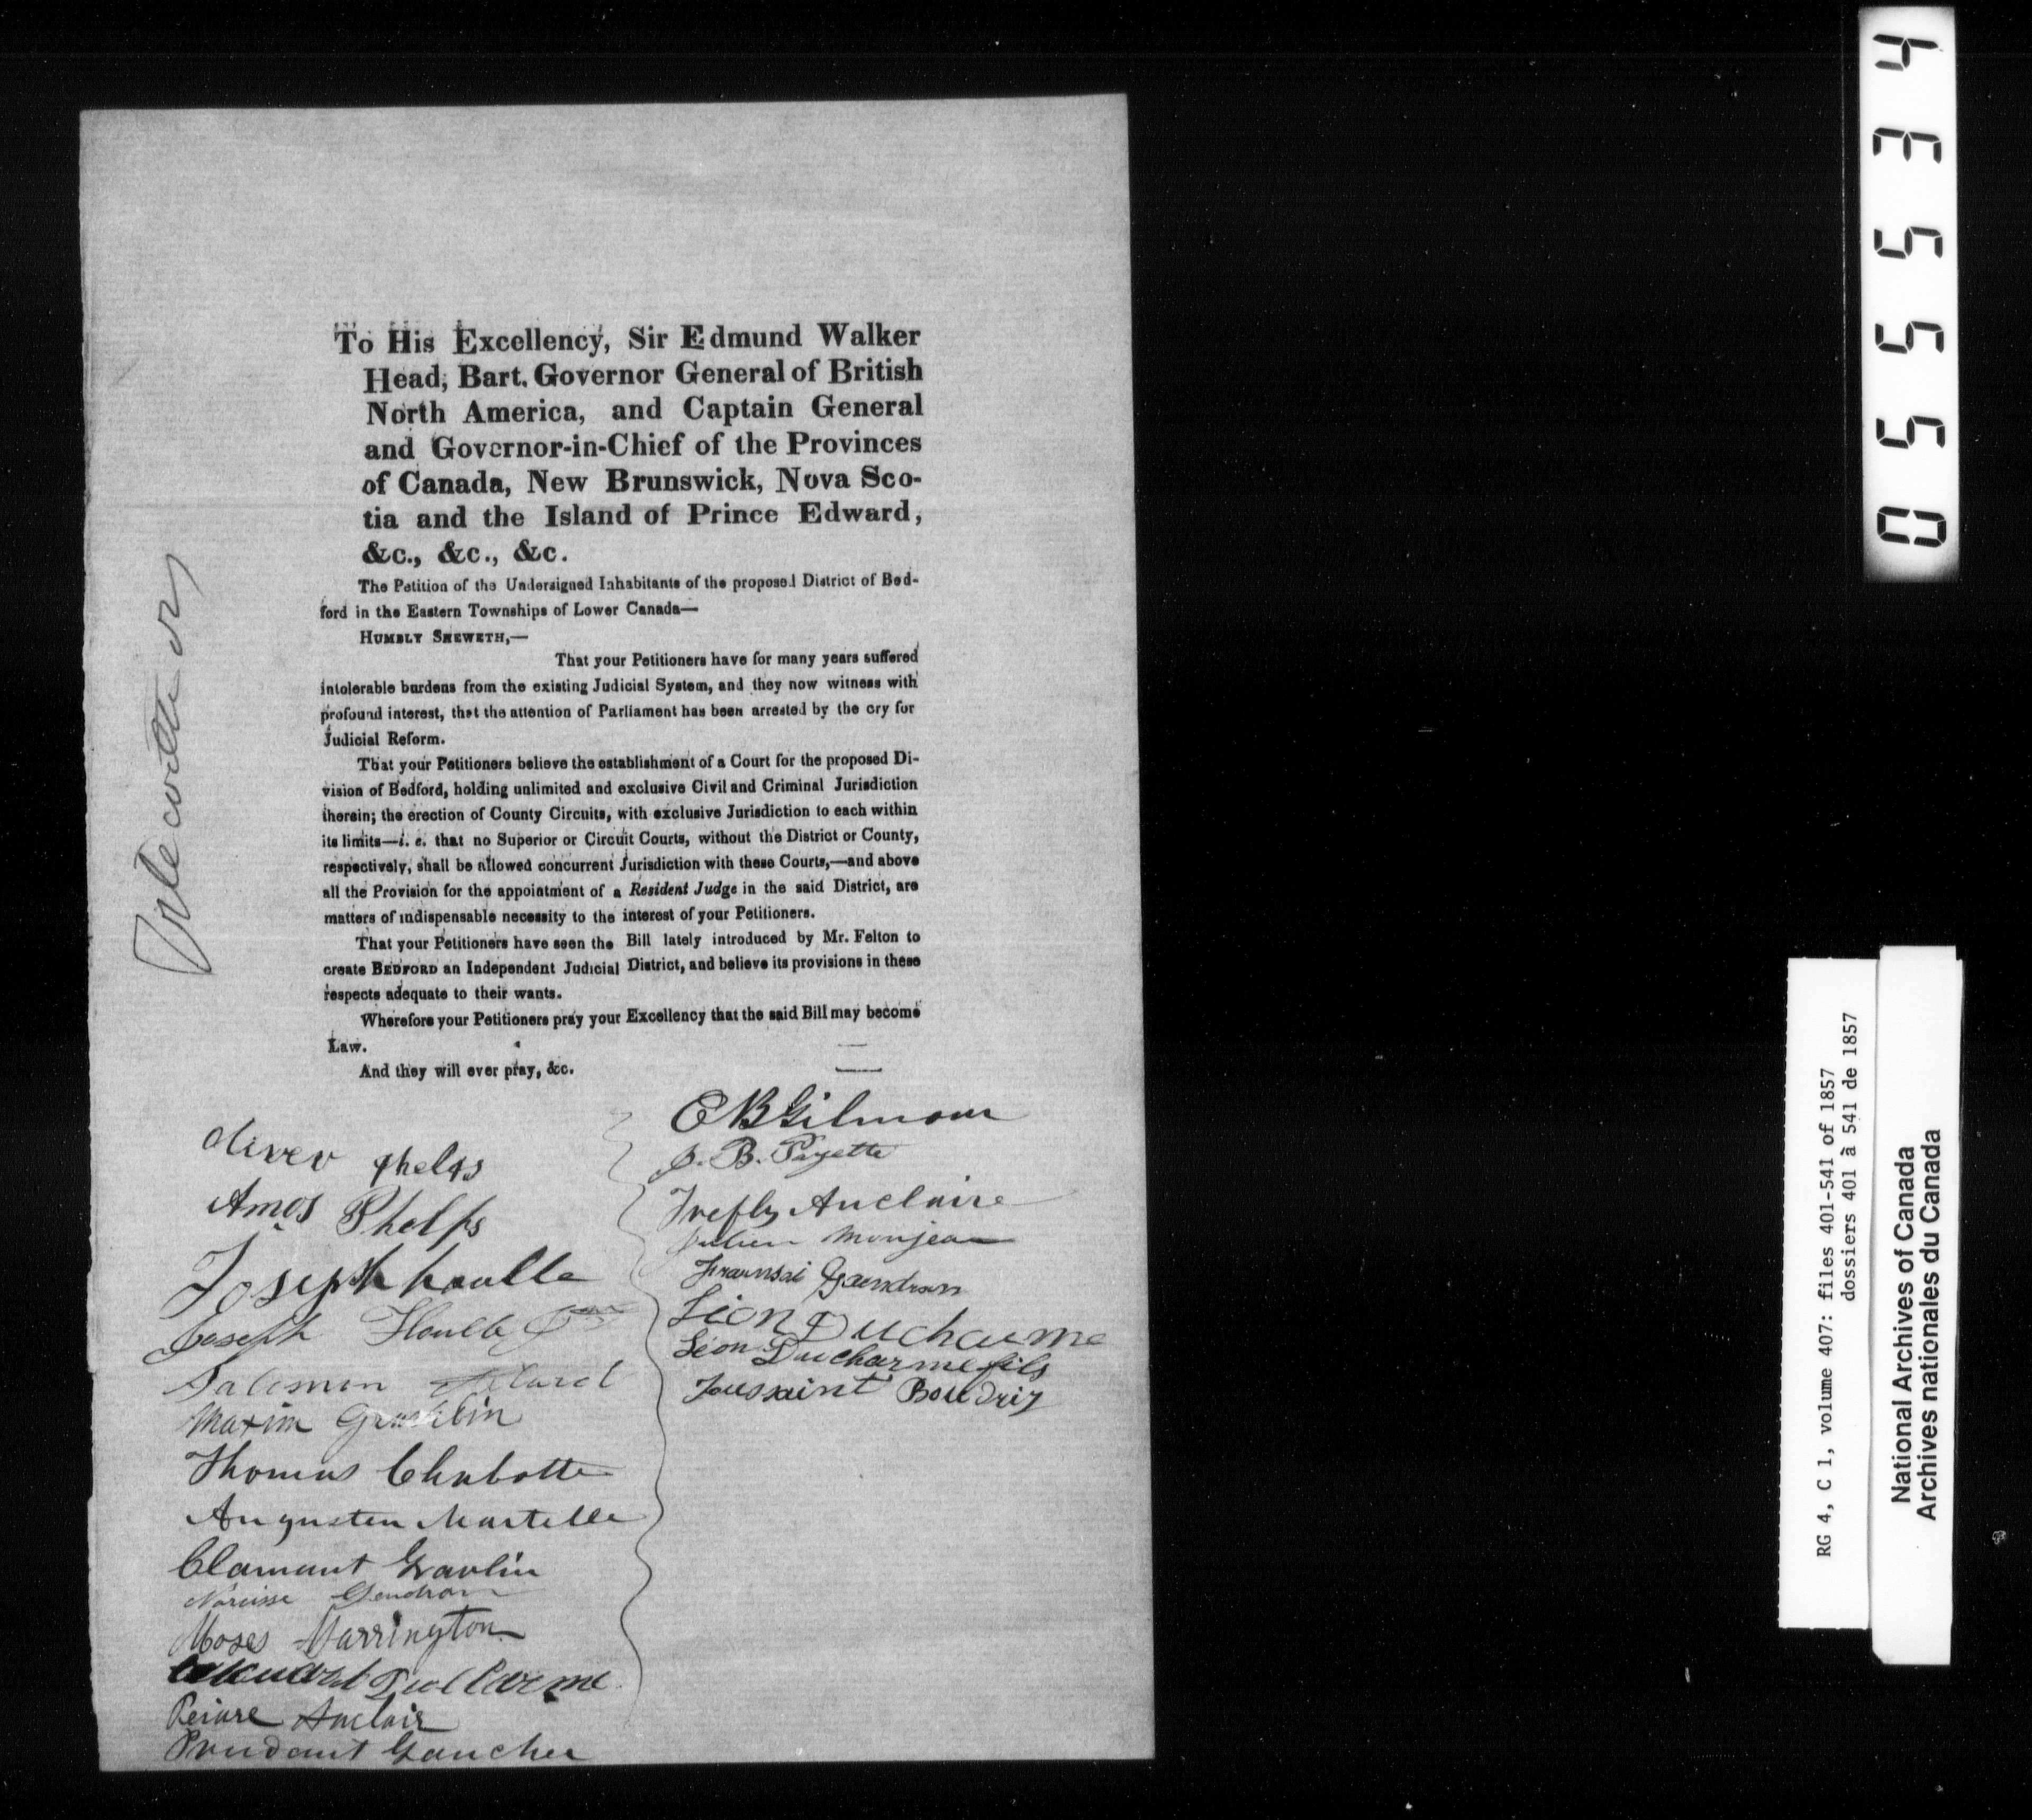 To His Excellency, Sir Edmund Walker
Head, Bart. Governor General of British
North America, and Captain General
and Governor-in-Chief of the Provinces
of Canada, New Brunswick, Nova Sco-
tia and the Island of Prince Edward,
&c., &c., &c.
The Petition of the Undersigned Inhabitants of the proposed District of Bed-
ford in the Eastern Townships of Lower Canada—
HUMBLY SHEWETH,—
That your Petitioners have for many years suffered
intolerable burdens from the existing Judicial System, and they now witness with
profound interest, that the attention of Parliament has been arrested by the cry for
Judicial Reform.
That your Petitioners believe the establishment of a Court for the proposed Di-
vision of Bedford, holding unlimited and exclusive Civil and Criminal Jurisdiction
therein; the erection of County Circuits, with exclusive Jurisdiction to each within
its limits—i. e. that no Superior or Circuit Courts, without the District or County,
respectively, shall be allowed concurrent Jurisdiction with these Courts,—and above
all the Provision for the appointment of a Resident Judge in the said District, are
matters of indispensable necessity to the interest of your Petitioners.
That your Petitioners have seen the Bill lately introduced by Mr. Felton to
create BEDFORD an Independent Judicial District, and believe its provisions in these
respects adequate to their wants.
Wherefore your Petitioners pray your Excellency that the said Bill may become
Law.
And they will ever pray, &c.
Oliver Phelps
Amos Phelps
Joseph houlle
Joseph Houlle
Salomon
Maxim
Thomas Chabotte
Augusten Martelle
Clamant Gravlin
Narcisse Gendron
Moses Marrington
Peiare Anclair
Prudant Gaucher
C B Gilmour
J. B. Payette
Trefly Anclaire
Julien Monjean
Fransai Gaendron
Léon Ducharme
Léon Ducharme fils
Toussaint Boudriz
055534
RG 4, C 1, volume 407: files 401-541 of 1857
dossiers 401 à 541 de 1857
National Archives of Canada
Archives nationales du Canada